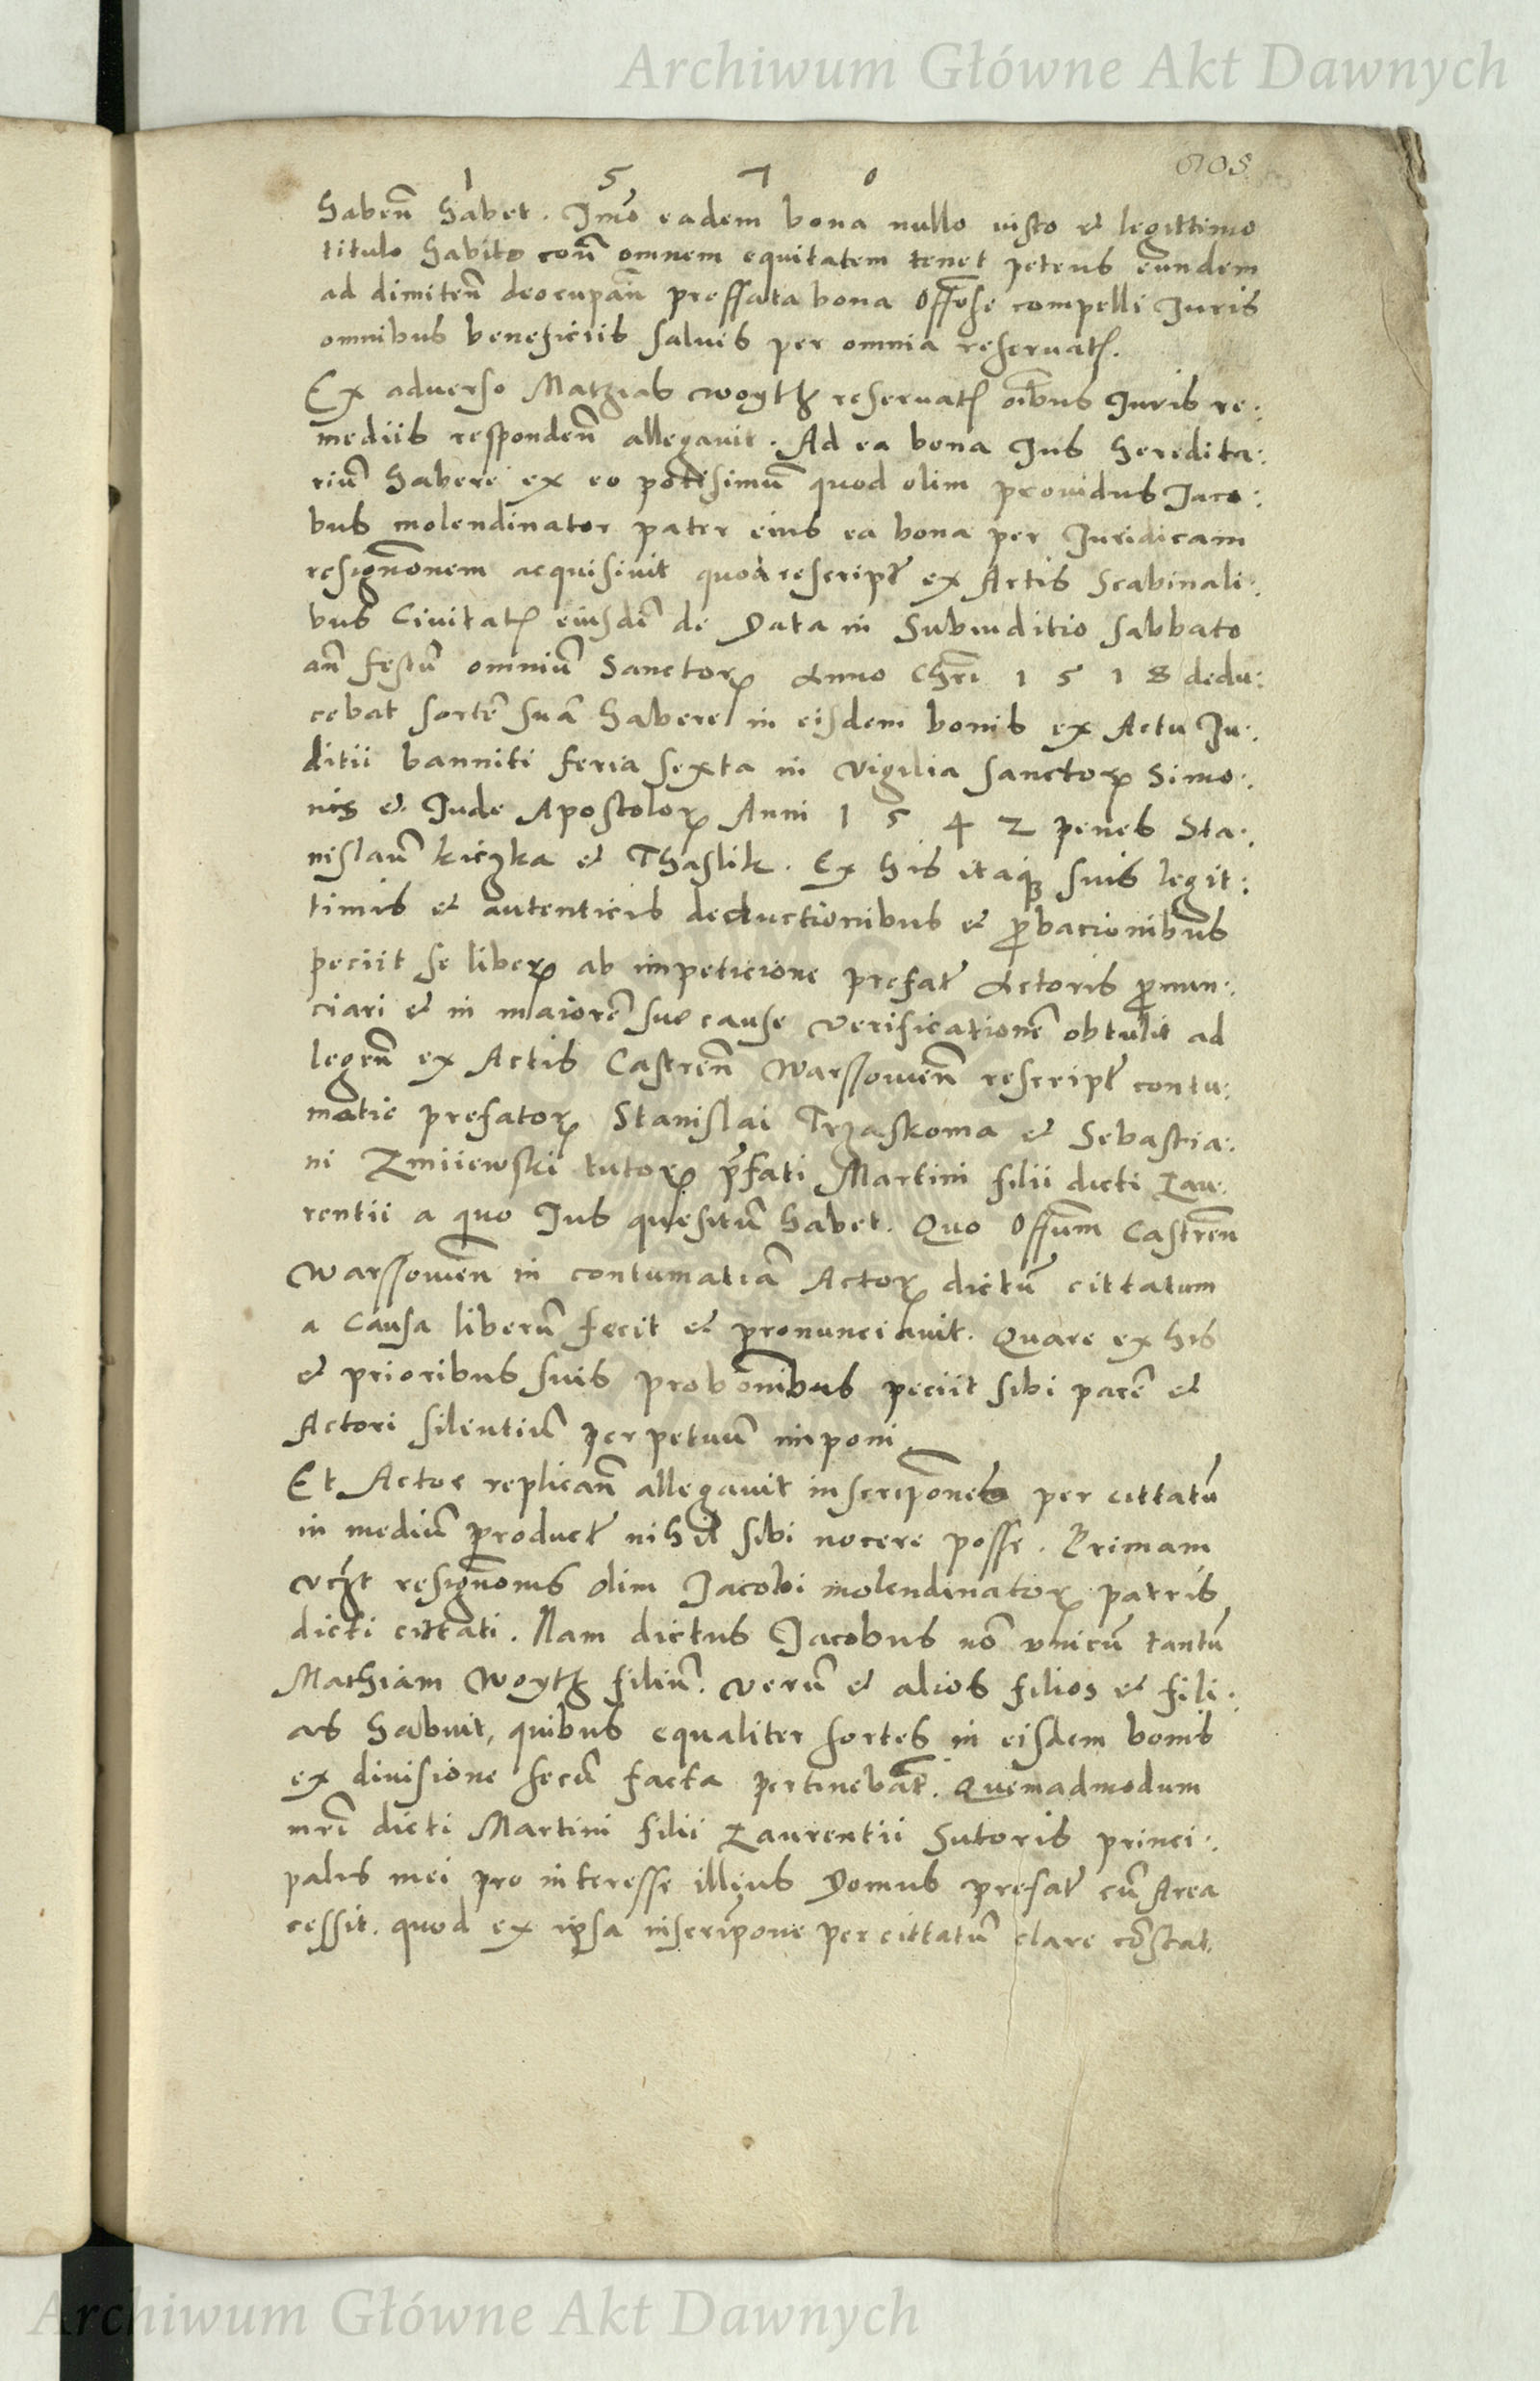 Archiwum Główne Akt Dawnych
1 5 7 0
habeñ habet. Imo eadem bona nullo iusto et legittimo
titulo habito coñ omnem equitatem tenet petens eundem
ad dimiteñ deocupañ preffata bona Offose compelli Iuris
omnibus beneficiis salvis per omnia reservat.
Ex adverso Matzias Woyth reservat oibus Iuris re:
mediis respondeñ allegavit. Ad ea bona Ius heredita:
riū habere ex eo potisimū quod olim providus Iaco:
bus molendinator pater eius ea bona per Iuridicam
resignonem acquisivit quod rescript ex Actis Scabinali:
bus Civitat eiusdē de Data in Subiuditio sabbato
añ festū omniū Sanctor Anno Chri 1 5 1 8 dedu:
cebat sortē suā habere in eisdem bonis ex Actu Iu:
ditii banniti feria sexta in vigilia sanctor Simo:
nis et Iude Apostolor Anni 1 5 4 2 penes Sta:
nislaū Kiczka et Thaslik. Ex his itaq suis legit:
timis et autenticis deductionibus et pbacionibus
peciit se liber ab impeticione prefat Actoris pnun:
ciari et in maiorē sue cause verificationē obtulit ad
legeñ ex Actis Castreñ Warssovieñ rescript contu:
matie prefator Stanislai Trzaskoma et Sebastia:
ni Zmiiewski tutor pfati Martini filii dicti Lau:
rentii a quo Ius quesitū habet. Quo Offium Castreñ
Warssovieñ in contumatiā Actor dictū cittatum
a causa liberū fecit et pronunciavit. Quare ex his
et prioribus suis probonibus peciit sibi parē et
Actori silentiū perpetuum imponi
Et Actor replicañ allegavit inscripones per cittatū
in mediū product nihil sibi nocere posse. Primam
vczt resignonis olim Jacobi molendinator patris
dicti cittati. Nam dictus Jacobus nō unicū tantū
Mathiam Woyth filiū. verū et alios filios et fili:
as habuit, quibus equaliter sortes in eisdem bonis
ex divisione secū facta pertinebāt. Quemadmodum
mri dicti Martini filii Laurentii Sutoris princi:
palis mei pro interesse illius Domus prefat cū Area
cessit. quod ex ipsa inscripone per cittatū clare cōstat.
Archiwum Główne Akt Dawnych